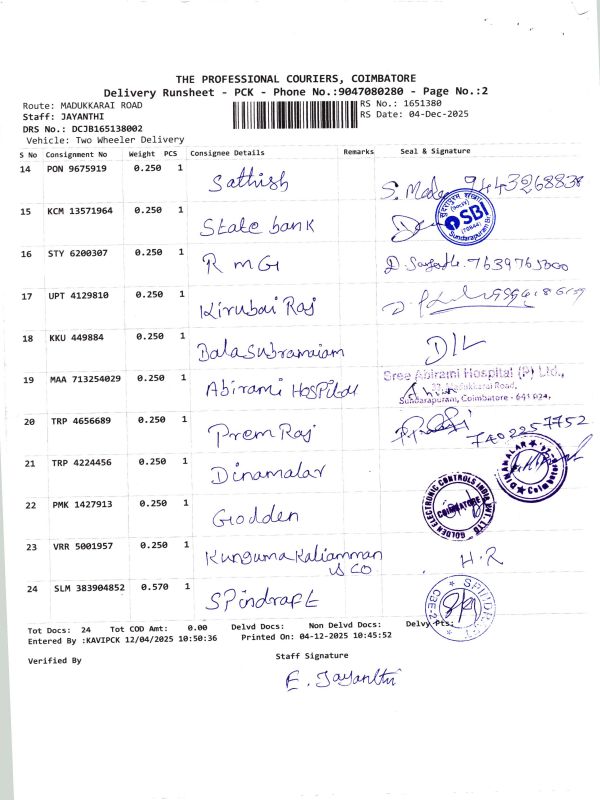 THE PROFESSIONAL COURIERS, COIMBATORE
Delivery Runsheet - PCK - Phone No.:9047080280 - Page No.:2
Route: MADUKKARAI ROAD
RS No.: 1651380
Staff: JAYANTHI
RS Date: 04-Dec-2025
DRS No.: DCJB165138002
Vehicle: Two Wheeler Delivery
S No Consignment No Weight PCS Consignee Details Remarks Seal & Signature
14 PON 9675919 0.250 1 Sathish 9443268838
15 KCM 13571964 0.250 1 State bank SBI
Sundarapuram
16 STY 6200307 0.250 1 R m G 7639765000
17 UPT 4129810 0.250 1 Kirubai Raj
18 KKU 449884 0.250 1 Balasubramaiam D/L
19 MAA 713254029 0.250 1 Abirami HOSPital Sree Abirami Hospital (P) Ltd.,
33, Madukkarai Road,
Sundarapuram, Coimbatore - 641 024.
20 TRP 4656689 0.250 1 Prem Raj 7402257752
21 TRP 4224456 0.250 1 Dinamalar DINAMALAR Coimbatore
22 PMK 1427913 0.250 1 Godden GOLDEN ELECTRONIC CONTROLS INDIA PVT. LTD COIMBATORE
23 VRR 5001957 0.250 1 Kunguma Kaliamman H.R
& CO
24 SLM 383904852 0.570 1 SPindraft CBE-2
Tot Docs: 24 Tot COD Amt: 0.00 Delvd Docs: Non Delvd Docs: Delvy Pts:
Entered By :KAVIPCK 12/04/2025 10:50:36 Printed On: 04-12-2025 10:45:52
Verified By
Staff Signature
E. Jayanthi